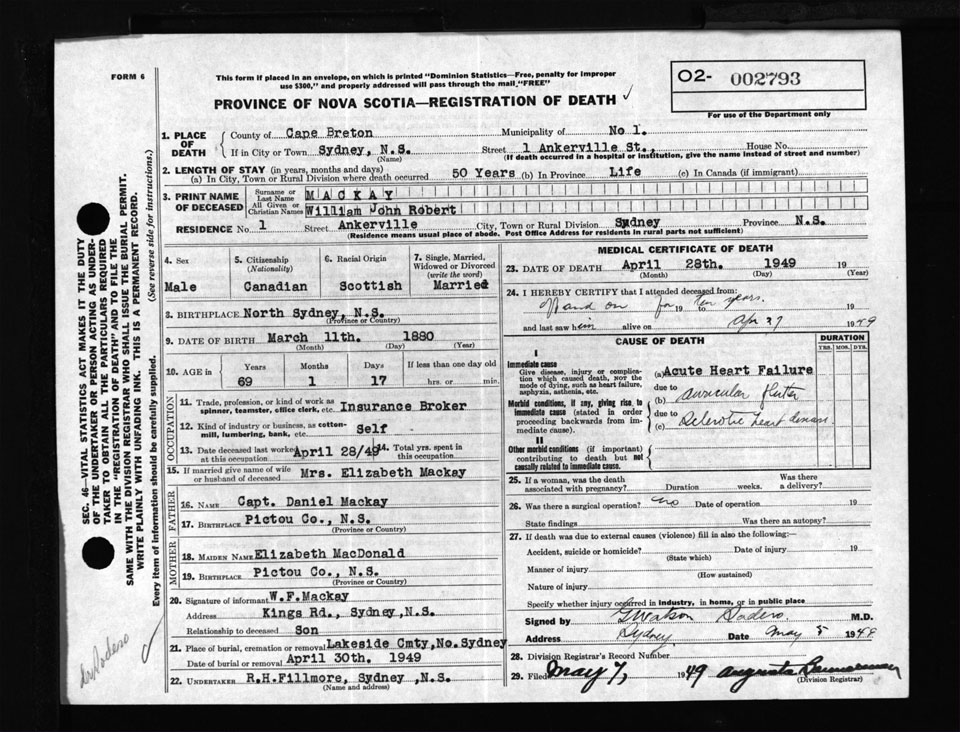 FORM 6
This form if placed in an envelope, on which is printed "Dominion Statistics—Free, penalty for improper
use $300," and properly addressed will pass through the mail "FREE"
O2- 002793
For use of the Department only
PROVINCE OF NOVA SCOTIA—REGISTRATION OF DEATH ✓
1. PLACE OF DEATH { County of Cape Breton Municipality of No 1.
If in City or Town Sydney, N.S. Street 1 Ankerville St., House No.
(Name) (If death occurred in a hospital or institution, give the name instead of street and number)
2. LENGTH OF STAY (in years, months and days)
(a) In City, Town or Rural Division where death occurred 50 Years (b) In Province Life (c) In Canada (if immigrant)
3. PRINT NAME OF DECEASED { Surname or Last Name MACKAY
All Given or Christian Names William John Robert
RESIDENCE No. 1 Street Ankerville City, Town or Rural Division Sydney Province N.S.
(Residence means usual place of abode. Post Office Address for residents in rural parts not sufficient)
4. Sex 5. Citizenship (Nationality) 6. Racial Origin 7. Single, Married, Widowed or Divorced (write the word)
Male Canadian Scottish Married
8. BIRTHPLACE North Sydney, N.S.
(Province or Country)
9. DATE OF BIRTH March 11th. 1880
(Month) (Day) (Year)
10. AGE in Years Months Days If less than one day old
69 1 17 hrs. or min.
OCCUPATION
11. Trade, profession, or kind of work as spinner, teamster, office clerk, etc. Insurance Broker
12. Kind of industry or business, as cotton-mill, lumbering, bank, etc Self
13. Date deceased last worked at this occupation April 28/49 14. Total yrs. spent in this occupation
15. If married give name of wife or husband of deceased Mrs. Elizabeth Mackay
FATHER
16. NAME Capt. Daniel Mackay
17. BIRTHPLACE Pictou Co., N.S.
(Province or Country)
MOTHER
18. MAIDEN NAME Elizabeth MacDonald
19. BIRTHPLACE Pictou Co., N.S.
(Province or Country)
20. Signature of informant W.F.Mackay
Address Kings Rd., Sydney, N.S.
Relationship to deceased Son
21. Place of burial, cremation or removal Lakeside Cmty, No.Sydney
Date of burial or removal April 30th. 1949
22. UNDERTAKER R.H.Fillmore, Sydney, N.S.
(Name and address)
MEDICAL CERTIFICATE OF DEATH
23. DATE OF DEATH April 28th. 1949 19
(Month) (Day) (Year)
24. I HEREBY CERTIFY that I attended deceased from:
and on for 19 to ten years. 19
and last saw him alive on Apr 27 1949
CAUSE OF DEATH
DURATION
YRS. MOS. DYS.
I
Immediate cause
Give disease, injury or complication which caused death, NOT the mode of dying, such as heart failure, asphyxia, asthenia, etc.
(a) Acute Heart Failure
due to
(b) auricular flutter
Morbid conditions, if any, giving rise to immediate cause (stated in order proceeding backwards from immediate cause).
due to
(c) Sclerotic heart disease
II
Other morbid conditions (if important) contributing to death but not causally related to immediate cause.
25. If a woman, was the death associated with pregnancy? Duration weeks. Was there a delivery?
26. Was there a surgical operation? no Date of operation 19
State findings Was there an autopsy?
27. If death was due to external causes (violence) fill in also the following:—
Accident, suicide or homicide? Date of injury 19
(State which)
Manner of injury
(How sustained)
Nature of injury
Specify whether injury occurred in industry, in home, or in public place
Signed by G Watson Sodero M.D.
Address Sydney Date May 5 194
28. Division Registrar's Record Number
29. Filed May 7, 1949 Augusta
(Division Registrar)
SEC. 46—VITAL STATISTICS ACT MAKES IT THE DUTY
OF THE UNDERTAKER OR PERSON ACTING AS UNDER-
TAKER TO OBTAIN ALL THE PARTICULARS REQUIRED
IN THE "REGISTRATION OF DEATH" AND TO FILE THE
SAME WITH THE DIVISION REGISTRAR WHO SHALL ISSUE THE BURIAL PERMIT.
WRITE PLAINLY WITH UNFADING INK. THIS IS A PERMANENT RECORD.
Every item of information should be carefully supplied. (See reverse side for instructions.)
Dr Sodero